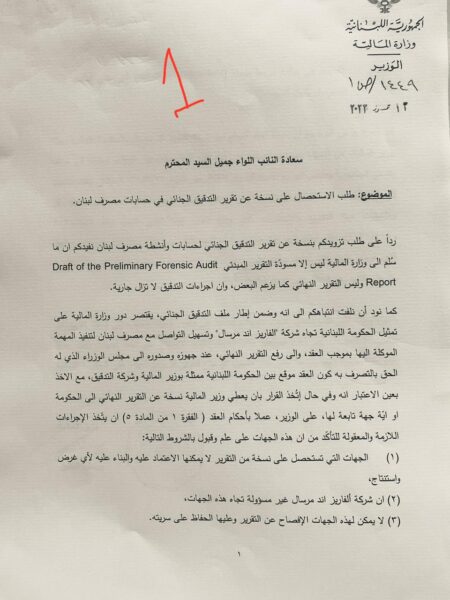 الجمهوريّة اللبنانيّة
وزارة الماليّة
الوزير
١٤٤٩/ص١
1
سعادة النائب اللواء جميل السيد المحترم
الموضوع: طلب الاستحصال على نسخة عن تقرير التدقيق الجنائي في حسابات مصرف لبنان.
رداً على طلب تزويدكم بنسخة عن تقرير التدقيق الجنائي لحسابات وأنشطة مصرف لبنان نفيدكم ان ما
سُلم الى وزارة المالية ليس إلا مسودّة التقرير المبدئي Draft of the Preliminary Forensic Audit
Report وليس التقرير النهائي كما يزعم البعض، وان اجراءات التدقيق لا تزال جارية.
كما نود أن نلفت انتباهكم الى انه وضمن إطار ملف التدقيق الجنائي، يقتصر دور وزارة المالية على
تمثيل الحكومة اللبنانية تجاه شركة "الفاريز اند مرسال" وتسهيل التواصل مع مصرف لبنان لتنفيذ المهمة
الموكلة اليها بموجب العقد، والى رفع التقرير النهائي، عند جهوزه وصدوره الى مجلس الوزراء الذي له
الحق بالتصرف به كون العقد موقع بين الحكومة اللبنانية ممثلة بوزير المالية وشركة التدقيق، مع الاخذ
بعين الاعتبار انه وفي حال إتُخذ القرار بان يعطي وزير المالية نسخة عن التقرير النهائي الى الحكومة
او ايّة جهة تابعة لها، على الوزير، عملا بأحكام العقد ( الفقرة ١ من المادة ٥) ان يتّخذ الإجراءات
اللازمة والمعقولة للتأكّد من ان هذه الجهات على علم وقبول بالشروط التالية:
(١) الجهات التي تستحصل على نسخة من التقرير لا يمكنها الاعتماد عليه والبناء عليه لأي غرض
واستنتاج،
(٢) ان شركة ألفاريز اند مرسال غير مسؤولة تجاه هذه الجهات،
(٣) لا يمكن لهذه الجهات الإفصاح عن التقرير وعليها الحفاظ على سريته.
١